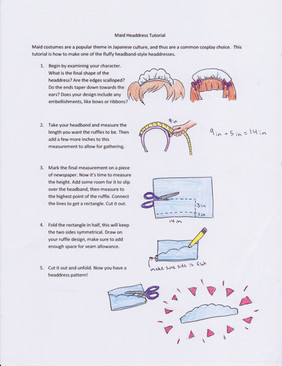 Maid Headdress Tutorial
Maid costumes are a popular theme in Japanese culture, and thus are a common cosplay choice. This
tutorial is how to make one of the fluffy headband-style headdresses.
1. Begin by examining your character.
What is the final shape of the
headdress? Are the edges scalloped?
Do the ends taper down towards the
ears? Does your design include any
embellishments, like bows or ribbons?
2. Take your headband and measure the
length you want the ruffles to be. Then
add a few more inches to this
measurement to allow for gathering.
9 in
9 in + 5 in = 14 in
3. Mark the final measurement on a piece
of newspaper. Now it's time to measure
the height. Add some room for it to slip
over the headband, then measure to
the highest point of the ruffle. Connect
the lines to get a rectangle. Cut it out.
14 in
4. Fold the rectangle in half, this will keep
the two sides symmetrical. Draw on
your ruffle design, make sure to add
enough space for seam allowance.
make sure side is flat
5. Cut it out and unfold. Now you have a
headdress pattern!